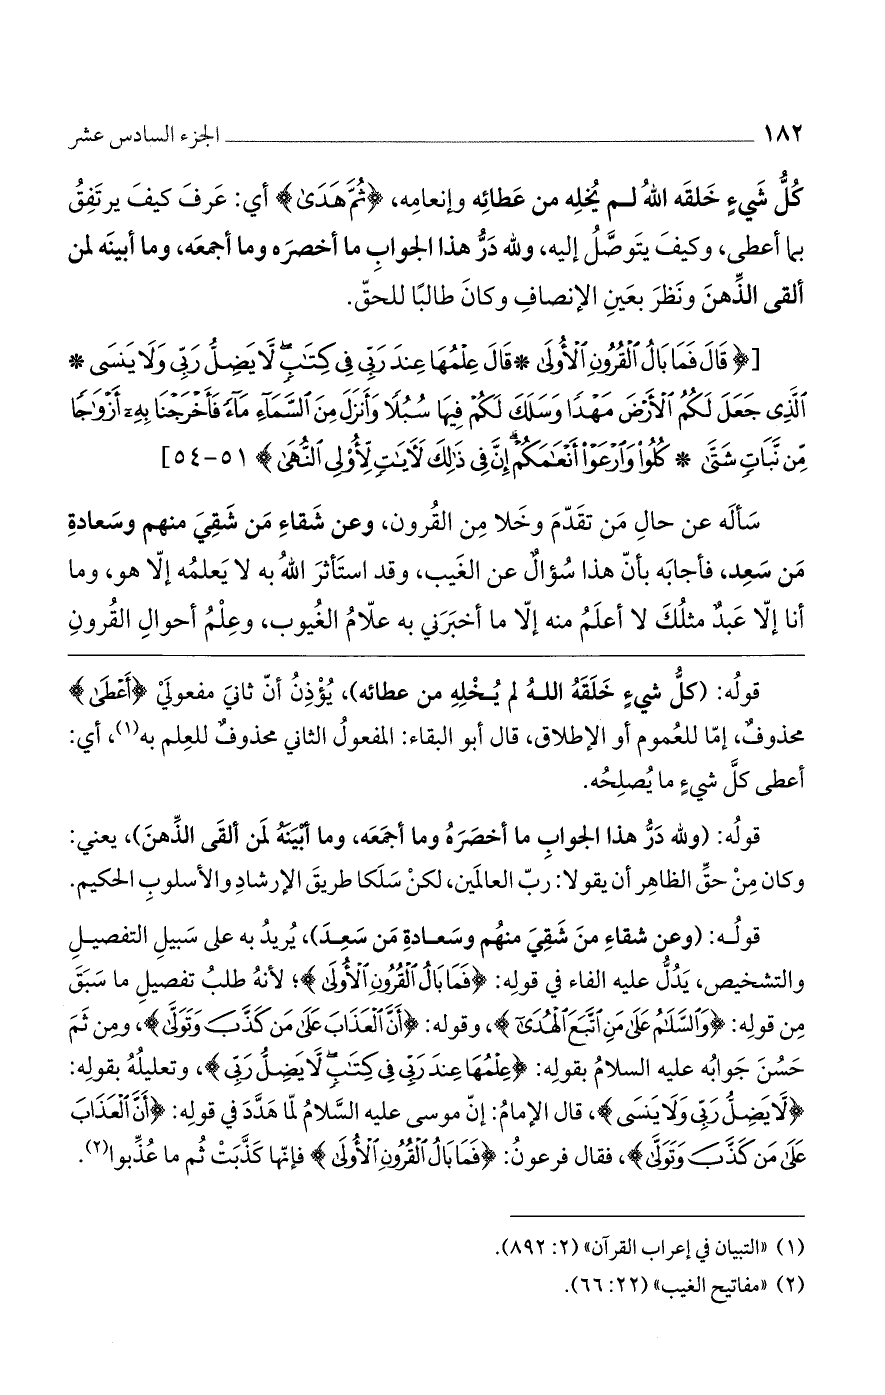 ١٨٢ ـــــــــــــــــــــــــــــــــــــــــــــــــ الجزء السادس عشر
كُلُّ شَيءٍ خَلقَه اللهُ لـم يُخلِه من عَطائِه وإنعامِه، ﴿ثُمَّ هَدَىٰ﴾ أي: عَرفَ كيفَ يرتَفِقُ
بما أعطى، وكيفَ يتَوصَّلُ إليه، ولله دَرُّ هذا الجوابِ ما أخصرَه وما أجمعَه، وما أبينَه لمن
ألقى الذِّهنَ ونَظرَ بعَينِ الإنصافِ وكانَ طالبًا للحقّ.
[﴿ قَالَ فَمَا بَالُ ٱلْقُرُونِ ٱلْأُولَىٰ * قَالَ عِلْمُهَا عِندَ رَبِّى فِى كِتَٰبٍ ۖ لَّا يَضِلُّ رَبِّى وَلَا يَنسَى *
ٱلَّذِى جَعَلَ لَكُمُ ٱلْأَرْضَ مَهْدًا وَسَلَكَ لَكُمْ فِيهَا سُبُلًا وَأَنزَلَ مِنَ ٱلسَّمَآءِ مَآءً فَأَخْرَجْنَا بِهِۦٓ أَزْوَٰجًا
مِّن نَّبَاتٍ شَتَّىٰ * كُلُوا۟ وَٱرْعَوْا۟ أَنْعَٰمَكُمْ ۗ إِنَّ فِى ذَٰلِكَ لَءَايَٰتٍ لِّأُو۟لِى ٱلنُّهَىٰ ﴾ ٥١-٥٤]
سَألَه عن حالِ مَن تقدّمَ وخَلا مِن القُرون، وعن شَقاءِ مَن شَقِيَ منهم وسَعادةِ
مَن سَعِد، فأجابَه بأنّ هذا سُؤالٌ عن الغَيب، وقد استَأثرَ اللهُ به لا يَعلمُه إلّا هو، وما
أنا إلّا عَبدٌ مثلُكَ لا أعلَمُ منه إلّا ما أخبَرَني به علّامُ الغُيوب، وعِلْمُ أحوالِ القُرونِ
قولُه: (كلُّ شيءٍ خَلَقَهُ اللـهُ لم يُـخْلِهِ من عطائه)، يُؤْذِنُ أنّ ثانيَ مفعوليْ ﴿أَعْطَىٰ﴾
محذوفٌ، إمّا للعُموم أو الإطلاق، قال أبو البقاء: المفعولُ الثاني محذوفٌ للعِلم به(١)، أي:
أعطى كلَّ شيءٍ ما يُصلِحُه.
قولُه: (ولله دَرُّ هذا الجوابِ ما أخصَرَهُ وما أجمَعَه، وما أبْيَنَهُ لمَن ألقَى الذِّهنَ)، يعني:
وكان مِنْ حقِّ الظاهِر أن يقولا: ربّ العالمَين، لكنْ سَلَكا طريقَ الإرشادِ والأسلوبِ الحكيم.
قولُـه: (وعن شقاءِ منَ شَقِيَ منهُم وسَعـادةِ مَن سَعِـدَ)، يُريدُ به على سَبيلِ التفصيـلِ
والتشخيص، يَدُلُّ عليه الفاء في قولِه: ﴿فَمَا بَالُ ٱلْقُرُونِ ٱلْأُولَىٰ ﴾؛ لأنهُ طلبُ تفصيلِ ما سَبَقَ
مِن قولِه: ﴿وَٱلسَّلَٰمُ عَلَىٰ مَنِ ٱتَّبَعَ ٱلْهُدَىٰٓ ﴾، وقوله: ﴿أَنَّ ٱلْعَذَابَ عَلَىٰ مَن كَذَّبَ وَتَوَلَّىٰ ﴾، ومِن ثَمَ
حَسُنَ جوابُه عليه السلامُ بقولِه: ﴿عِلْمُهَا عِندَ رَبِّى فِى كِتَٰبٍ ۖ لَّا يَضِلُّ رَبِّى ﴾، وتعليلُهُ بقولِه:
﴿لَّا يَضِلُّ رَبِّى وَلَا يَنسَى ﴾، قال الإمامُ: إنّ موسى عليه السَّلامُ لمّا هَدَّدَ في قولِه: ﴿أَنَّ ٱلْعَذَابَ
عَلَىٰ مَن كَذَّبَ وَتَوَلَّىٰ ﴾، فقال فرعونُ: ﴿فَمَا بَالُ ٱلْقُرُونِ ٱلْأُولَىٰ ﴾ فإنّها كَذَّبَتْ ثُم ما عُذِّبوا(٢).
(١) «التبيان في إعراب القرآن» (٢: ٨٩٢).
(٢) «مفاتيح الغيب» (٢٢: ٦٦).